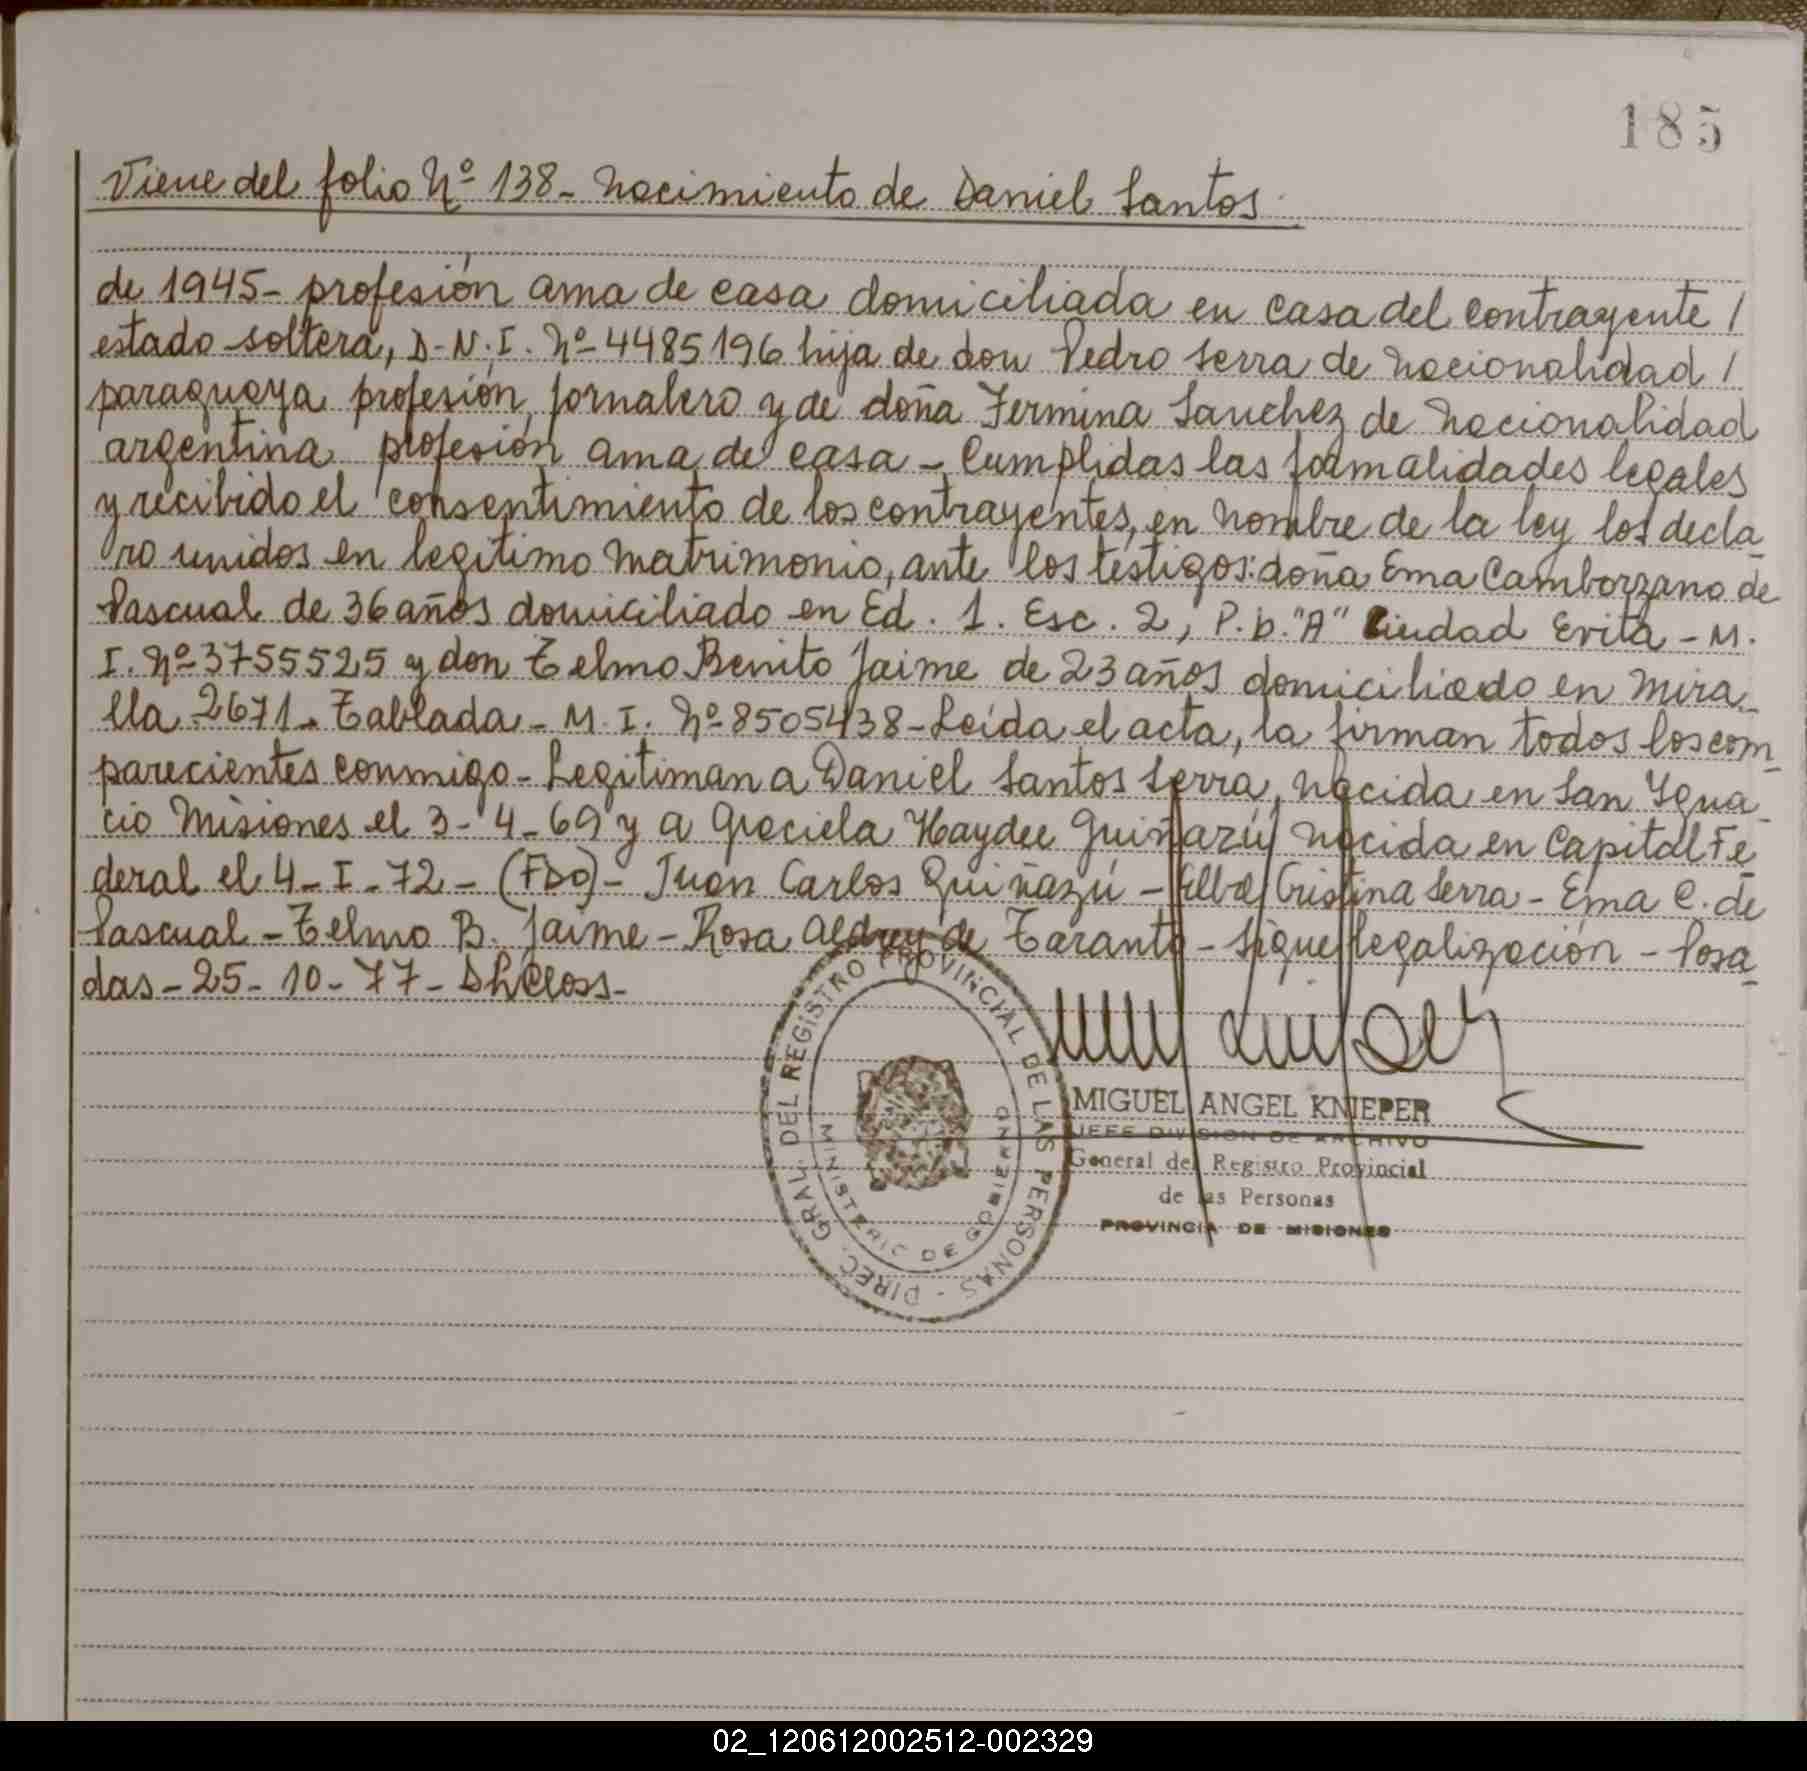 185
Viene del folio Nº 138- Nacimiento de Daniel Santos
de 1945- profesión ama de casa domiciliada en casa del contrayente /
estado soltera, D-N.I. Nº 4485196 hija de don Pedro Serra de nacionalidad /
paraguaya profesión jornalero y de doña Fermina Sanchez de nacionalidad
argentina profesión ama de casa - Cumplidas las formalidades legales
y recibido el consentimiento de los contrayentes, en nombre de la ley los decla_
ro unidos en legítimo matrimonio, ante los testigos: doña Ema Camborzano de
Pascual de 36 años domiciliado en Ed. 1. Esc. 2, P.b. "A" Ciudad Evita - M.
I. Nº 3755525 y don Telmo Benito Jaime de 23 años domiciliado en Mira_
lla 2671. Tablada - M. I. Nº 8505438- Leída el acta, la firman todos los com_
parecientes conmigo - Legitiman a Daniel Santos Serra, nacida en San Igna_
cio Misiones el 3-4-69 y a Graciela Haydee Guiñazú nacida en Capital Fe_
deral el 4-I-72- (FDO)- Juan Carlos Guiñazú - Elba Cristina Serra - Ema C. de
Pascual - Telmo B. Jaime - Rosa Aldrey de Taranto - Sigue legalización - Posa_
das - 25-10-77-
MIGUEL ANGEL KNIEPER
JEFE DIVISION DE ARCHIVO
General del Registro Provincial
de las Personas
PROVINCIA DE MISIONES
DIREC. GRAL. DEL REGISTRO PROVINCIAL DE LAS PERSONAS -
MINISTERIO DE GOBIERNO
02_120612002512-002329